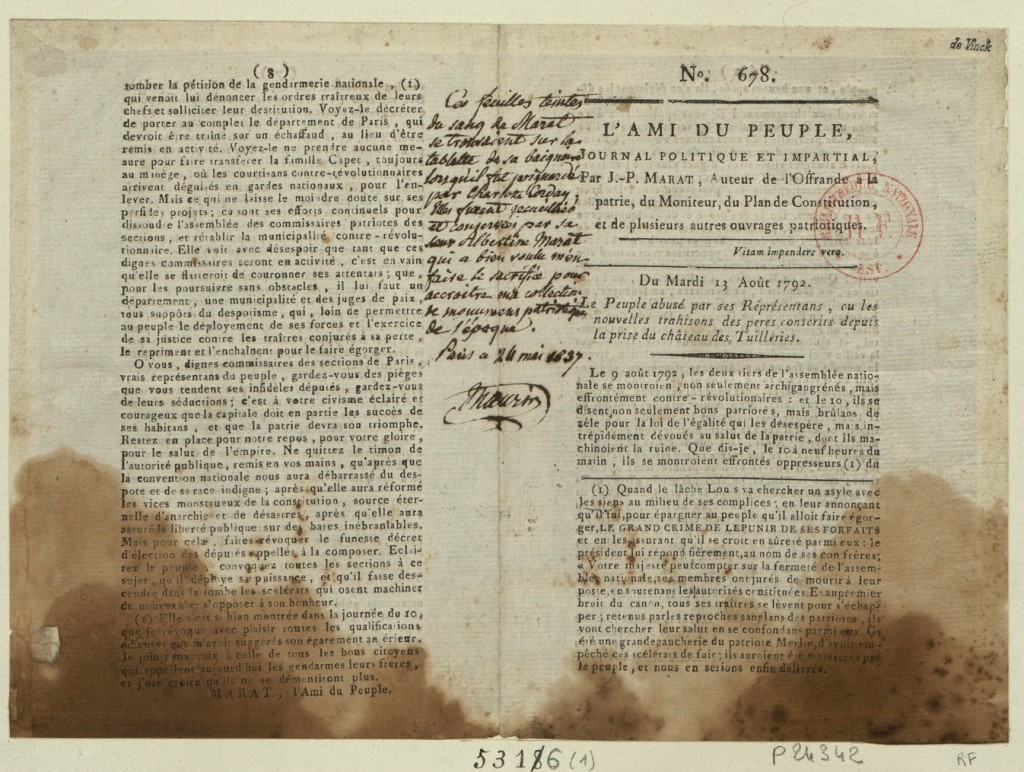 de Vinck
(8)
tomber la pétition de la gendarmerie nationale, (1)
qui venoit lui dénoncer les ordres traîtreux de leurs
chefs et solliciter leur destitution. Voyez-le décréter
de porter au complet le département de Paris, qui
devroit être traîné sur un échaffaud, au lieu d'être
remis en activité. Voyez-le ne prendre aucune me-
sure pour faire transférer la famille Capet, toujours
au manège, où les courtisans contre-révolutionnaires
arrivent déguisés en gardes nationaux, pour l'en-
lever. Mais ce qui ne laisse le moindre doute sur ses
perfides projets; ce sont ses efforts continuels pour
dissoudre l'assemblée des commissaires patriotes des
sections, et rétablir la municipalité contre-révolu-
tionnaire. Elle voit avec désespoir que tant que ces
dignes commissaires seront en activité, c'est en vain
qu'elle se flatteroit de couronner ses attentats; que,
pour les poursuivre sans obstacles, il lui faut un
département, une municipalité et des juges de paix,
tous suppôts du despotisme, qui, loin de permettre
au peuple le déployement de ses forces et l'exercice
de sa justice contre les traîtres conjurés à sa perte,
le repriment et l'enchaînent pour le faire égorger.
O vous, dignes commissaires des sections de Paris,
vrais représentans du peuple, gardez-vous des pièges
que vous tendent ses infidèles députés, gardez-vous
de leurs séductions; c'est à votre civisme éclairé et
courageux que la capitale doit en partie les succès de
ses habitans, et que la patrie devra son triomphe.
Restez en place pour notre repos, pour votre gloire,
pour le salut de l'empire. Ne quittez le timon de
l'autorité publique, remis en vos mains, qu'après que
la convention nationale nous aura débarrassé du des-
pote et de sa race indigne; après qu'elle aura réformé
les vices monstrueux de la constitution, source éter-
nelle d'anarchie et de désastres, après qu'elle aura
assuré la liberté publique sur des bases inébranlables.
Mais pour cela, faites révoquer le funeste décret
d'élection des députés appellés à la composer. Eclai-
rez le peuple, convoquez toutes les sections à ce
sujet, qu'il déploye sa puissance, et qu'il fasse des-
cendre dans la tombe les scélérats qui osent machiner
de nouveau et s'opposer à son bonheur.
(1) Elle s'est si bien montrée dans la journée du 10,
que je révoque avec plaisir toutes les qualifications
odieuses que m'avoit suggérés son égarement antérieur.
Je joints ma voix à celle de tous les bons citoyens
qui appellent aujourd'hui les gendarmes leurs frères,
et j'ose croire qu'ils ne se démentiront plus.
MARAT, l'Ami du Peuple.
Ces feuilles teintes
du sang de Marat
se trouvaient sur la
tablette de sa baignoire
lorsqu'il fut poignardé
par Charlotte Corday
Elles furent recueillies
et conservées par sa
sœur Albertine Marat
qui a bien voulu m'en
faire le sacrifice pour
accroitre ma collection
de monumens patriotiques
de l'époque.
Paris ce 24 mai 1837.
Maurin
No. 678.
L'AMI DU PEUPLE,
JOURNAL POLITIQUE ET IMPARTIAL,
Par J.-P. MARAT, Auteur de l'Offrande à la
patrie, du Moniteur, du Plan de Constitution,
et de plusieurs autres ouvrages patriotiques.
Vitam impendere vero.
Du Mardi 13 Août 1792.
Le Peuple abusé par ses Réprésentans, ou les
nouvelles trahisons des peres conscrits depuis
la prise du château des Tuilleries.
Le 9 août 1792, les deux tiers de l'assemblée natio-
nale se montroient, non seulement archigangrénés, mais
effrontément contre-révolutionaires: et le 10, ils se
disent, non seulement bons patriotes, mais brûlans de
zèle pour la loi de l'égalité qui les désespère, mais in-
trépidément dévoués au salut de la patrie, dont ils ma-
chinoient la ruine. Que dis-je, le 10 à neuf heures du
matin, ils se montroient effrontés oppresseurs (1) du
(1) Quand le lâche Louis va chercher un asyle avec
les siens au milieu de ses complices; en leur annonçant
qu'il fui, pour épargner au peuple qu'il alloit faire égor-
ger, LE GRAND CRIME DE LE PUNIR DE SES FORFAITS
et en les assurant qu'il se croit en sûreté parmi eux: le
président lui répond fièrement, au nom de ses confrères;
« Votre majesté peut compter sur la fermeté de l'assem-
blée nationale, ses membres ont jurés de mourir à leur
poste, en soutenant les autorités constituées. Et au premier
bruit du canon, tous ses traîtres se lèvent pour s'échap-
per; retenus par les reproches sanglans des patriotes, ils
vont chercher leur salut en se confondans parmi eux. Ç'a
été une grande gaucherie du patriote Merlin, d'avoir em-
pêché ces scélerats de fuir; ils auroient été massacrés par
le peuple, et nous en serions enfin délivrés.
R.F.
EST.
5316 (1)
P24342
RF